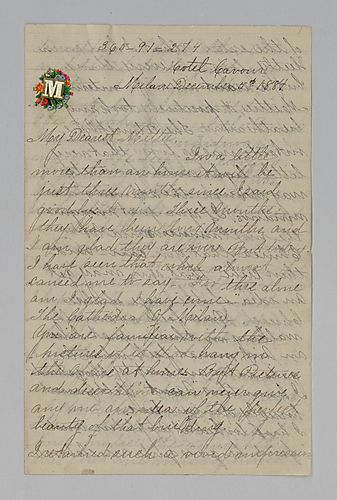 360-91-217
Hotel Cavour
Milan December 5th 1884
M
My Dearest Mittie,
In a little
more than an hour it will be
just three months since I said
good bye to you. Three months.
They have been long months and
I am glad they are over. But today
I have seen that which almost
caused me to say. For this alone
am I glad I have come.
The Cathedral of Milan.
You are familiar with the
pictures of it that hang on
the walls at home. Pictures
and descriptions can never give
any one an idea of the
beauty of that building.
I retained such a vivid impression